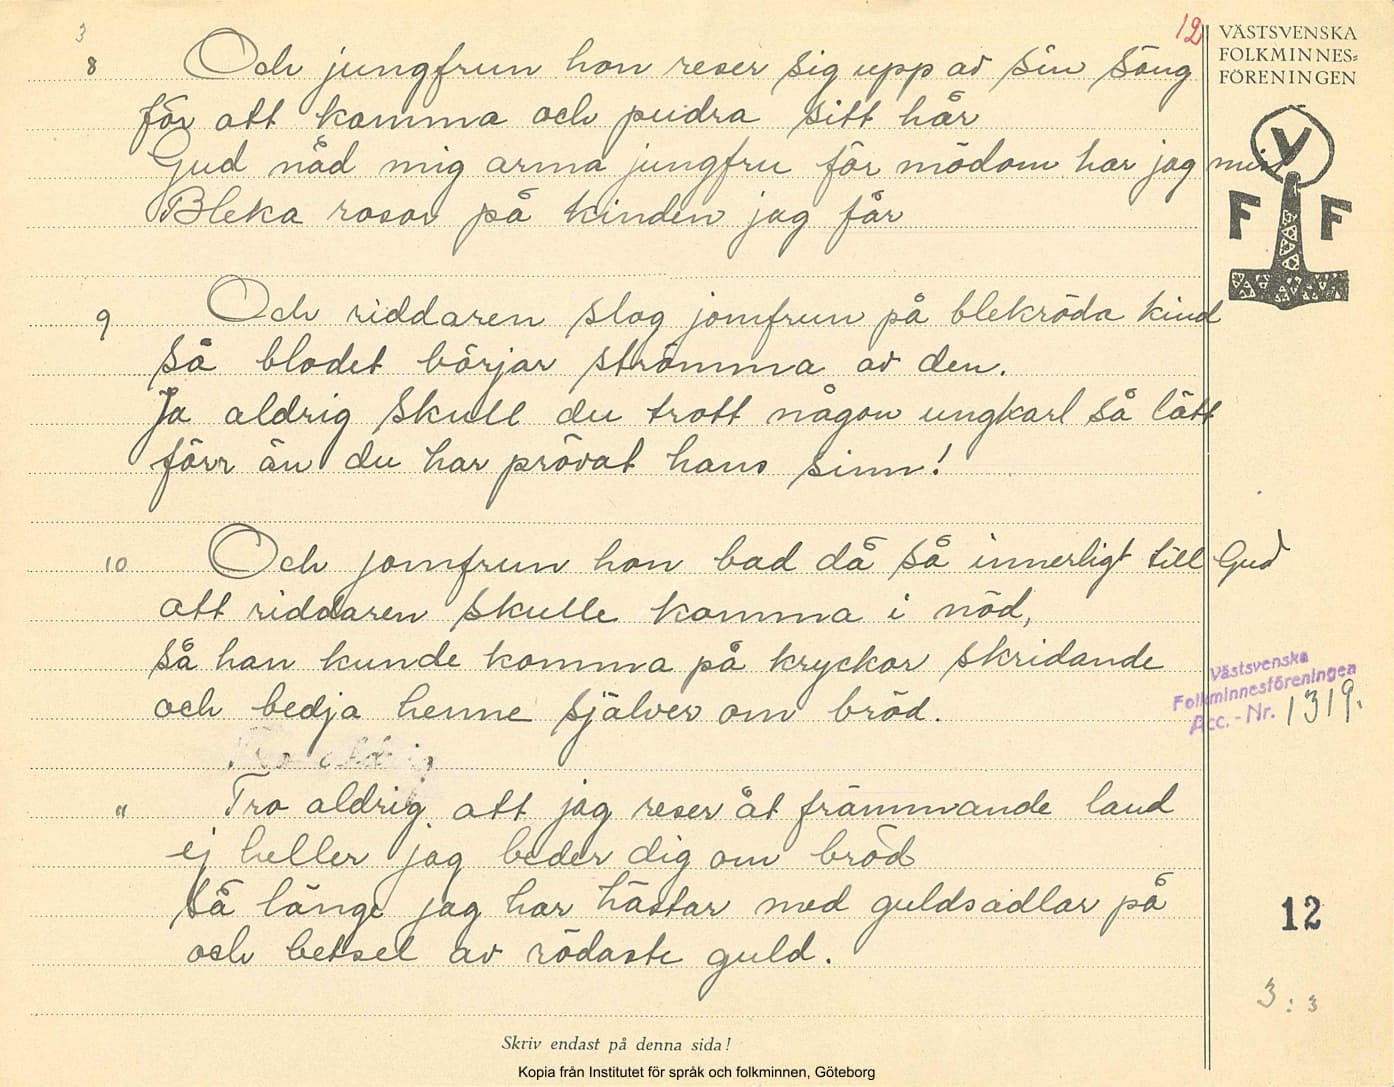 3
12
VÄSTSVENSKA
FOLKMINNES=
FÖRENINGEN
V
F F
8 Och jungfrun hon reser sig upp av sin säng
för att kamma och pudra sitt hår
Gud nåd mig arma jungfru för mödom har jag mist
Bleka rosor på kinden jag får
9 Och riddaren slog jomfrun på blekröda kind
så blodet börjar strömma av den.
Ja aldrig skull du trott någon ungkarl så lätt
förr än du har prövat hans sinn!
10 Och jomfrun hon bad då så innerligt till Gud
att riddaren skulle komma i nöd,
så han kunde komma på kryckor skridande
och bedja henne själver om bröd.
Västsvenska
Folkminnesföreningen
Acc.-Nr. 1319.
Tro aldrig
" Tro aldrig att jag reser åt främmande land
ej heller jag beder dig om bröd
så länge jag har hästar med guldsadlar på
och betsel av rödaste guld.
12
3:3
Skriv endast på denna sida!
Kopia från Institutet för språk och folkminnen, Göteborg